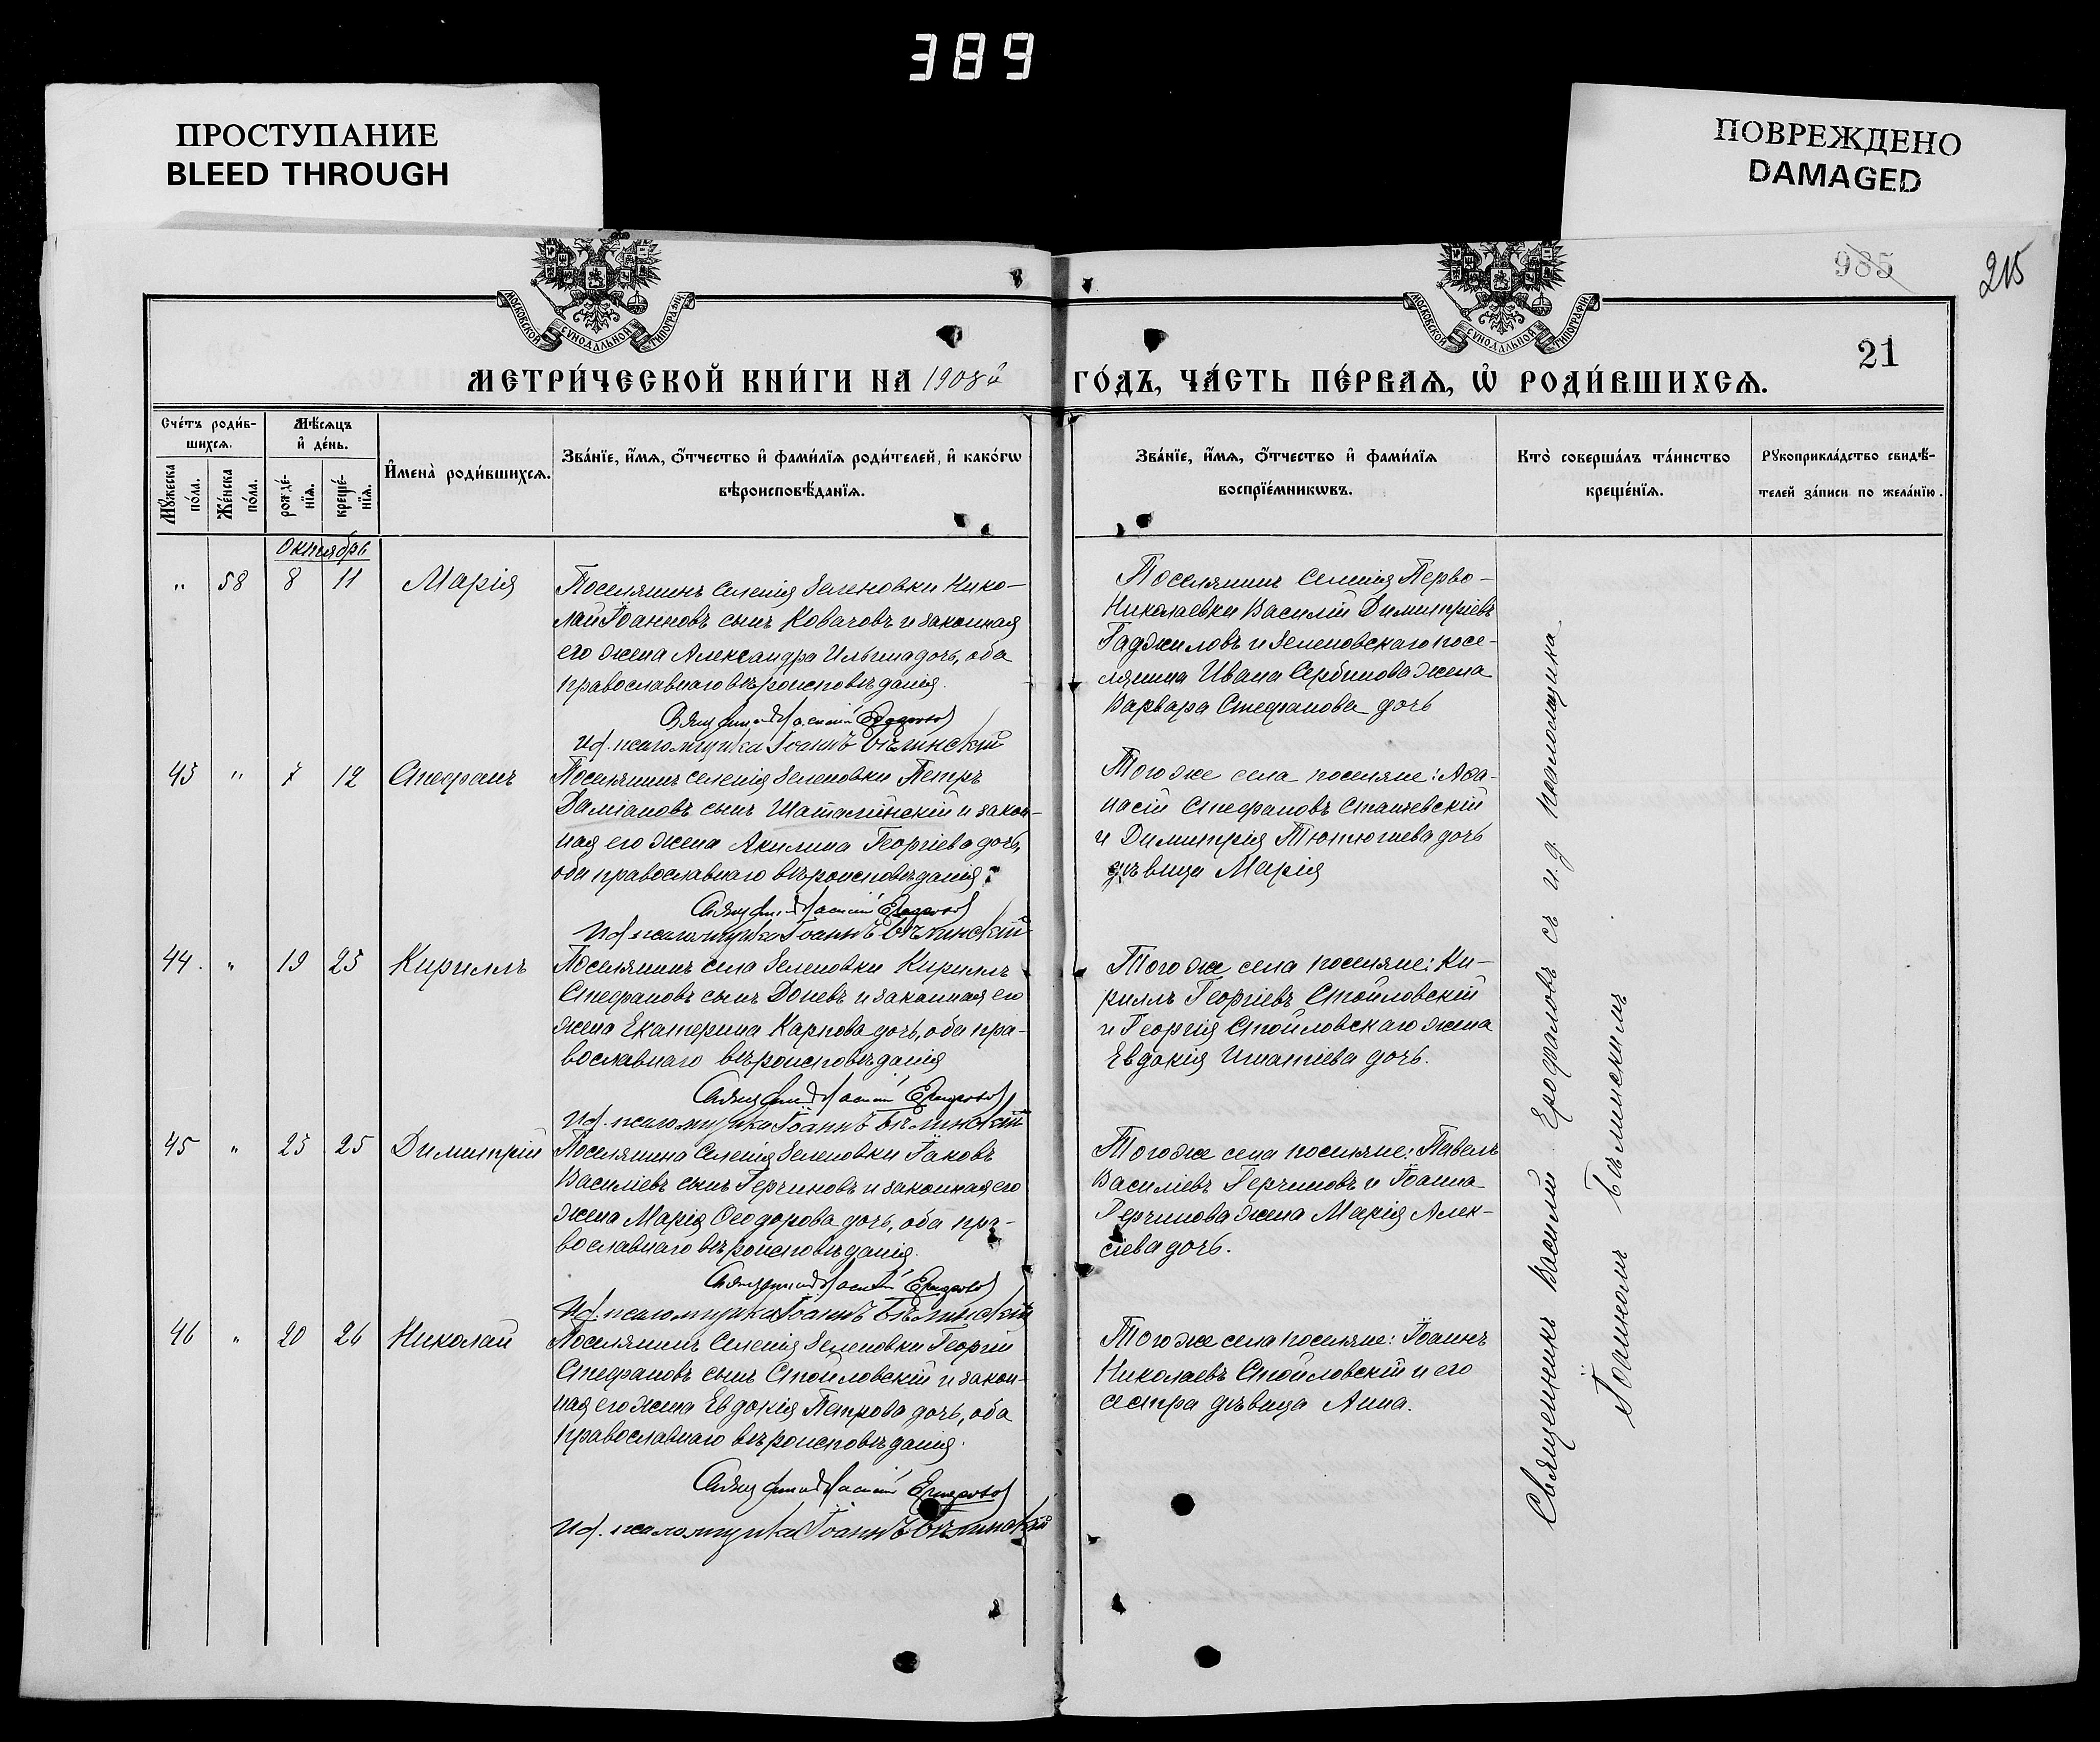 389
ПРОСТУПАНИЕ
BLEED THROUGH
ПОВРЕЖДЕНО
DAMAGED
985
215
МОСКОВСКОЙ СѴНОДАЛЬНОЙ ТИПОГРАФІИ
МОСКОВСКОЙ СѴНОДАЛЬНОЙ ТИПОГРАФІИ
21
МЕТРИ́ЧЕСКОЙ КНИ́ГИ НА 1908й ГО́ДЪ, ЧА́СТЬ ПЕ́РВАѦ, Ѡ РОДИ́ВШИХСѦ.
Сче́тъ роди́в-
шихсѧ.
Мꙋжеска по́ла.
Же́нска по́ла.
Мѣ́сѧцъ
и҆ де́нь.
рожде́-
нїѧ.
креще́-
нїѧ.
И҆мена̀ роди́вшихсѧ.
Зва́нїе, и҆́мѧ, ѻ҆́тчество и҆ фами́лїѧ роди́телей, и҆ како́гѡ
вѣроисповѣ́данїѧ.
Зва́нїе, и҆́мѧ, ѻ҆́тчество и҆ фами́лїѧ
воспрїе́мникѡвъ.
Кто̀ соверша́лъ та́инство
креще́нїѧ.
Рꙋкоприкла́дство свидѣ́-
телей за́писи по жела́нїю.
Октябрь
" 58 8 11 Марія
Поселянинъ селенія Зеленовки Нико-
лай Іоанновъ сынъ Ковачовъ и законная
его жена Александра Ильина дочь, оба
православнаго вѣроисповѣданія.
Священникъ Василій
И.д. псаломщика Іоаннъ Бѣлинскій
Поселянинъ селенія Перво-
Николаевки Василій Димитріевъ
Гаджиловъ и Зеленовскаго посе-
лянина Ивана Сербинова жена
Варвара Стефанова дочь
43 " 7 12 Стефанъ
Поселянинъ селенія Зеленовки Петръ
Даміановъ сынъ Шаталинскій и закон-
ная его жена Акилина Георгіева дочь,
оба православнаго вѣроисповѣданія.
Священникъ Василій
И.д. псаломщика Іоаннъ Бѣлинскій
Того же села поселяне: Афа-
насій Стефановъ Станчевскій
и Димитрія Тютюгиева дочь
дѣвица Марія
44. " 19 25 Кириллъ
Поселянинъ села Зеленовки Кириллъ
Стефановъ сынъ Доневъ и законная его
жена Екатерина Карпова дочь, оба пра-
вославнаго вѣроисповѣданія
Священникъ Василій
И.д. псаломщика Іоаннъ Бѣлинскій
Того же села поселяне: Ки-
риллъ Георгіевъ Стойловскій
и Георгія Стойловскаго жена
Евдокія Игнатіева дочь.
45 " 23 25 Димитрій
Поселянина селенія Зеленовки Іаковъ
Василіевъ сынъ Герчиновъ и законная его
жена Марія Ѳеодорова дочь, оба пра-
вославнаго вѣроисповѣданія.
Священникъ Василій
И.д. псаломщика Іоаннъ Бѣлинскій
Того же села поселяне: Павелъ
Василіевъ Герчиновъ и Іоанна
Герчинова жена Марія Алек-
сіева дочь.
46 " 20 26 Николай
Поселянинъ селенія Зеленовки Георгій
Стефановъ сынъ Стойловскій и закон-
ная его жена Евдокія Петрова дочь, оба
православнаго вѣроисповѣданія.
Священникъ Василій
И.д. псаломщика Іоаннъ Бѣлинскій
Того же села поселяне: Іоаннъ
Николаевъ Стойловскій и его
сестра дѣвица Анна.
Священникъ Василій съ и.д. псаломщика
Іоанномъ Бѣлинскимъ